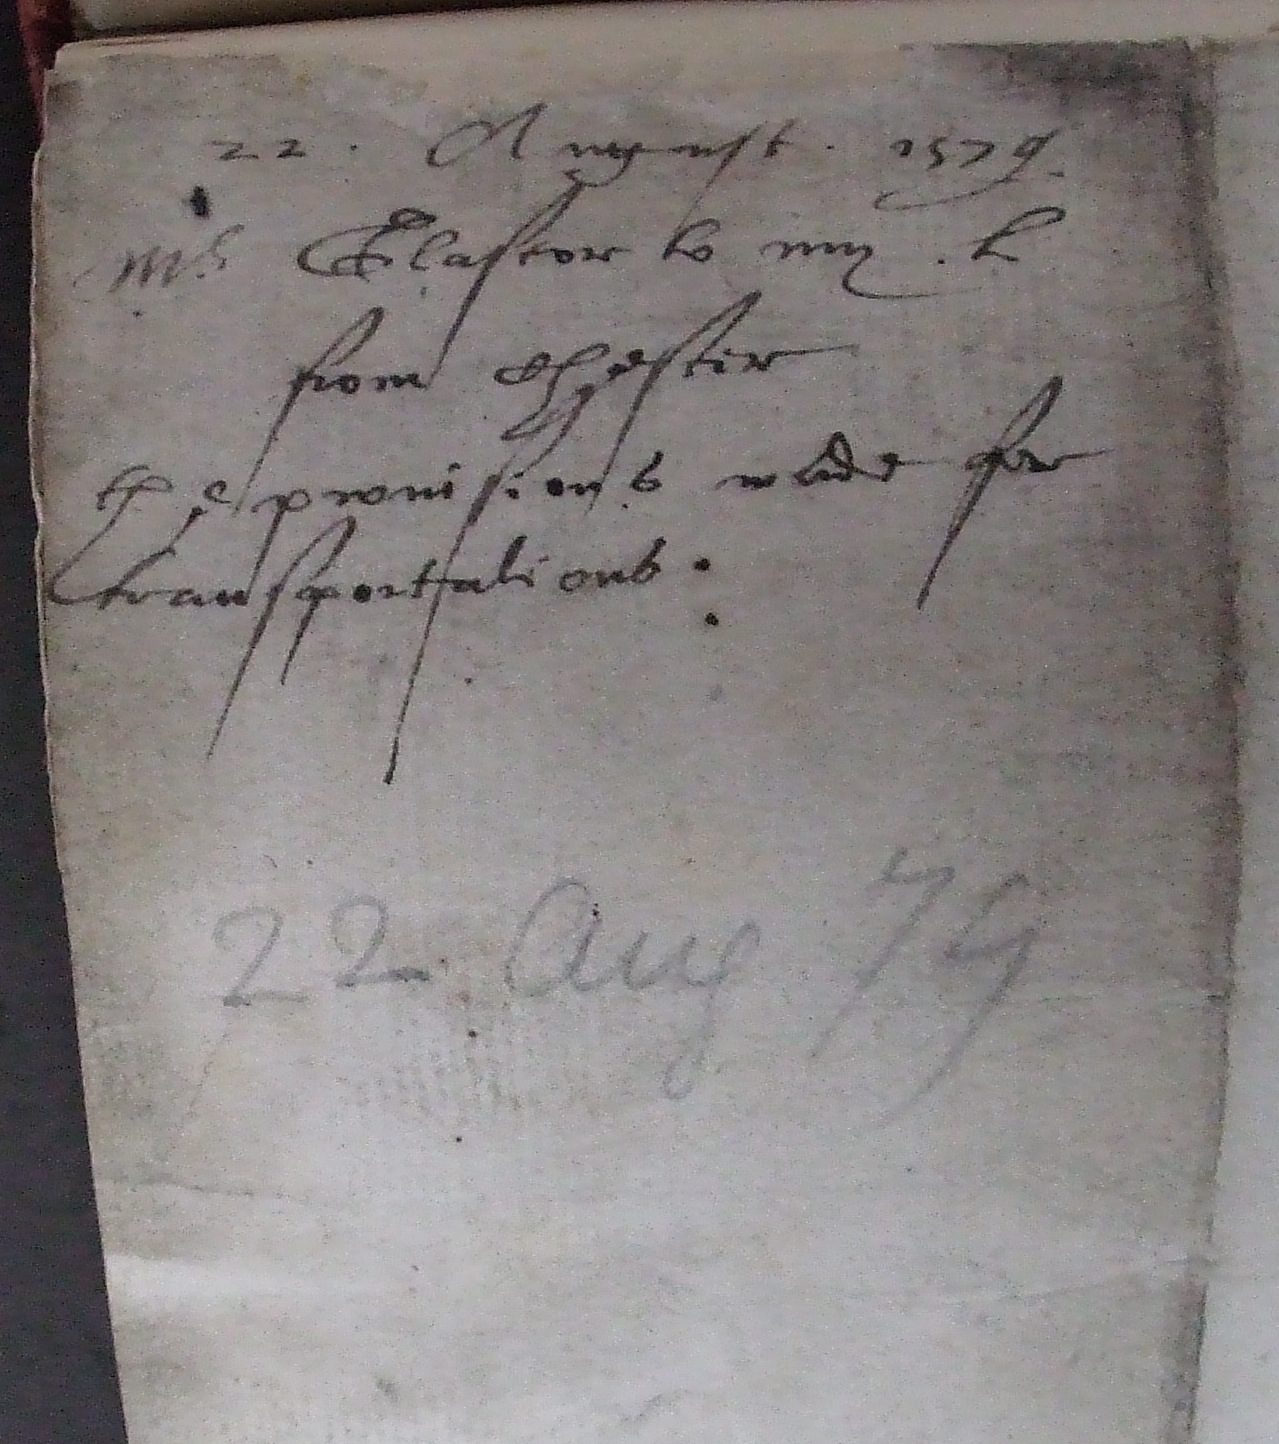 22. August. 1579.
Mr Glaseor to my. L
from Chester
The provisions made for
transportations.
22 Aug 79